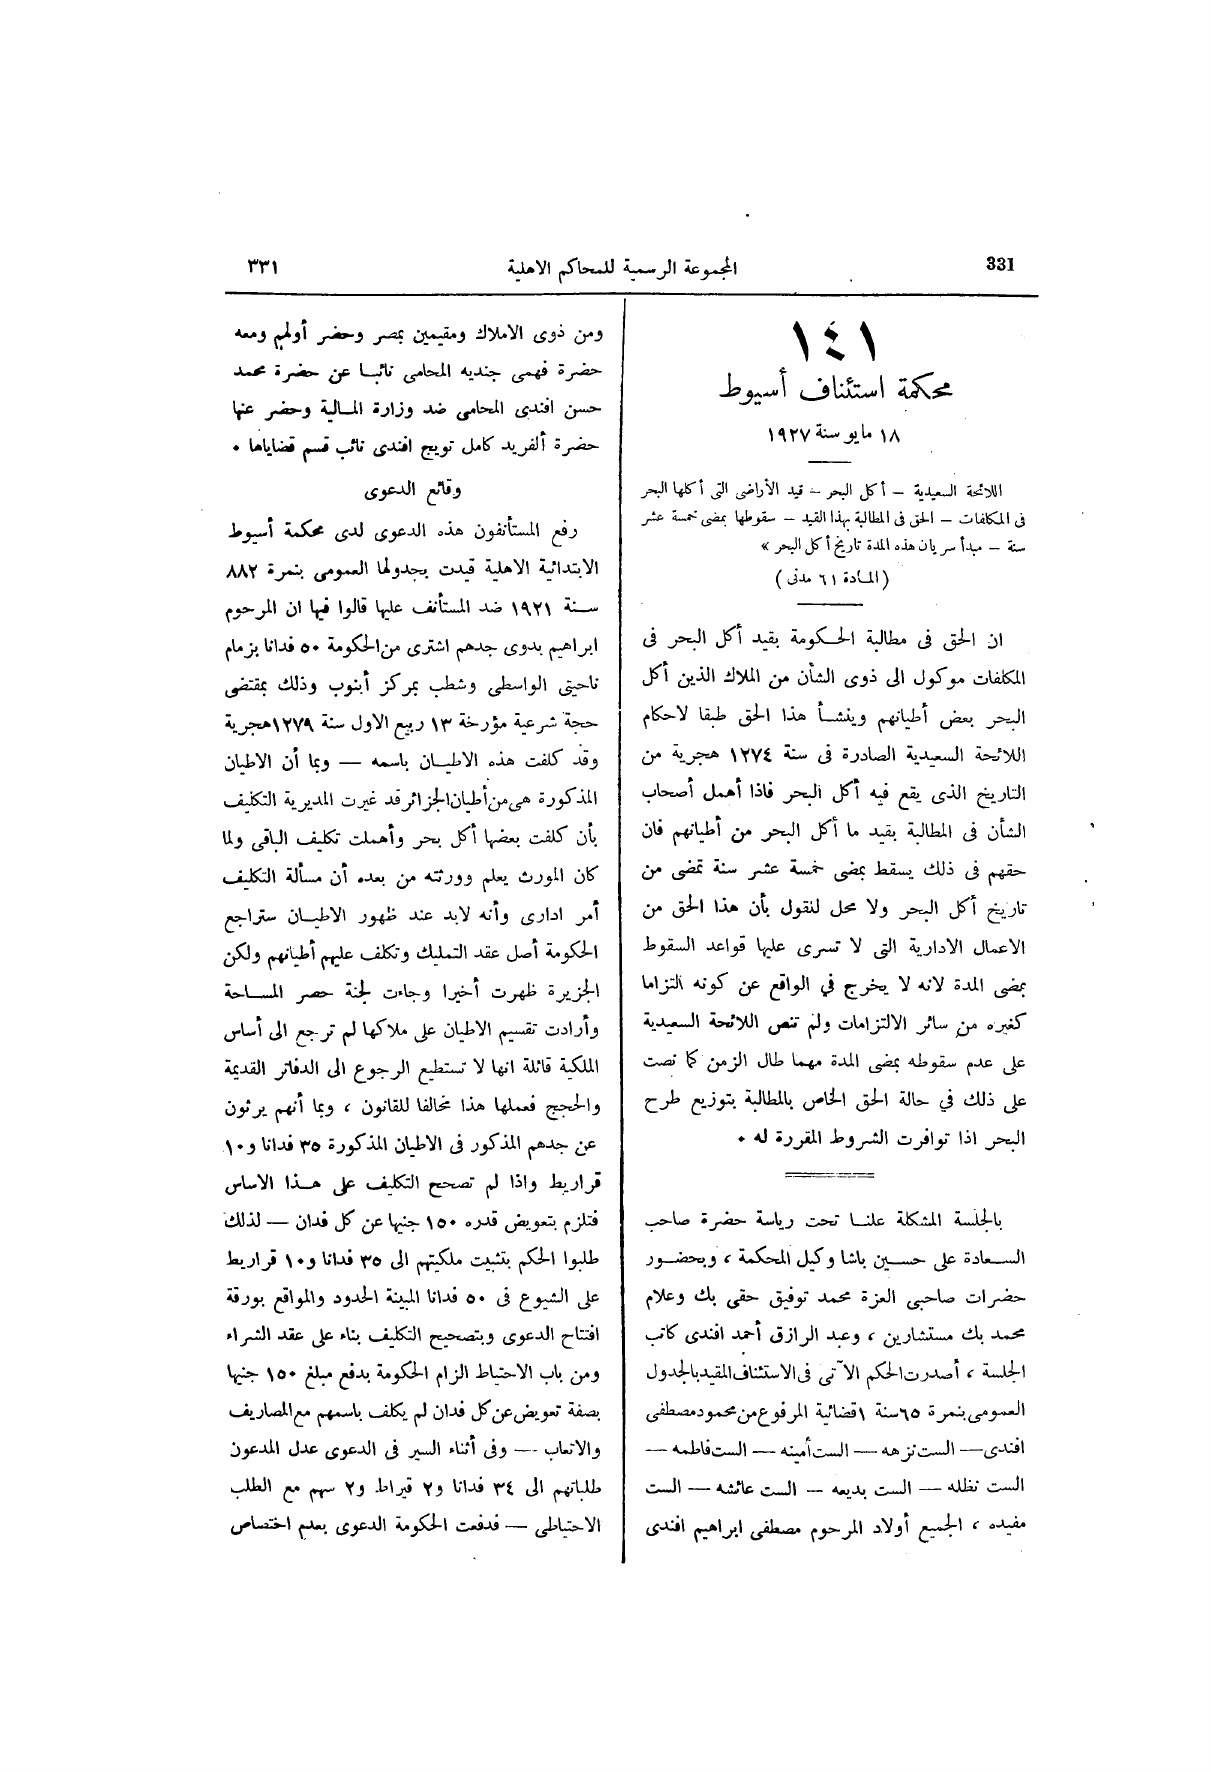 331
المجموعة الرسمية للمحاكم الاهلية
٣٣١
١٤١
محكمة استئناف أسيوط
١٨ مايو سنة ١٩٢٧
اللائحة السعيدية – أكل البحر – قيد الأراضى التى أكلها البحر
فى المكلفات – الحق فى المطالبة بهذا القيد – سقوطها بمضى خمسة عشر
سنة – مبدأ سريان هذه المدة تاريخ أكل البحر »
( المادة ٦١ مدنى )
ان الحق فى مطالبة الحكومة بقيد أكل البحر فى
المكلفات موكول الى ذوى الشأن من الملاك الذين أكل
البحر بعض أطيانهم وينشأ هذا الحق طبقا لاحكام
اللائحة السعيدية الصادرة فى سنة ١٢٧٤ هجرية من
التاريخ الذى يقع فيه أكل البحر فاذا أهمل أصحاب
الشأن فى المطالبة بقيد ما أكل البحر من أطيانهم فان
حقهم فى ذلك يسقط بمضى خمسة عشر سنة تمضى من
تاريخ أكل البحر ولا محل للقول بأن هذا الحق من
الاعمال الادارية التى لا تسرى عليها قواعد السقوط
بمضى المدة لانه لا يخرج في الواقع عن كونه التزاما
كغيره من سائر الالتزامات ولم تنص اللائحة السعيدية
على عدم سقوطه بمضى المدة مهما طال الزمن كما نصت
على ذلك في حالة الحق الخاص بالمطالبة بتوزيع طرح
البحر اذا توافرت الشروط المقررة له ٠
بالجلسة المشكلة علنا تحت رياسة حضرة صاحب
السعادة على حسين باشا وكيل المحكمة ، وبحضور
حضرات صاحبى العزة محمد توفيق حقى بك وعلام
محمد بك مستشارين ، وعبد الرازق أحمد افندى كاتب
الجلسة ، أصدرت الحكم الآتى فى الاستئناف المقيد بالجدول
العمومى بنمرة ٦٥ سنة ١ قضائية المرفوع من محمود مصطفى
افندى — الست نزهه — الست أمينه — الست فاطمه —
الست نظله — الست بديعه — الست عائشه — الست
مفيده ، الجميع أولاد المرحوم مصطفى ابراهيم افندى
ومن ذوى الاملاك ومقيمين بمصر وحضر أولهم ومعه
حضرة فهمى جنديه المحامى نائبا عن حضرة محمد
حسن افندى المحامى ضد وزارة المالية وحضر عنها
حضرة ألفريد كامل تويج افندى نائب قسم قضاياها ٠
وقائع الدعوى
رفع المستأنفون هذه الدعوى لدى محكمة أسيوط
الابتدائية الاهلية قيدت بجدولها العمومى بنمرة ٨٨٢
سنة ١٩٢١ ضد المستأنف عليها قالوا فيها ان المرحوم
ابراهيم بدوى جدهم اشترى من الحكومة ٥٠ فدانا بزمام
ناحيتى الواسطى وشطب بمركز أبنوب وذلك بمقتضى
حجة شرعية مؤرخة ١٣ ربيع الاول سنة ١٢٧٩ هجرية
وقد كلفت هذه الاطيان باسمه — وبما أن الاطيان
المذكورة هى من أطيان الجزائر قد غيرت المديرية التكليف
بأن كلفت بعضها أكل بحر وأهملت تكليف الباقى ولما
كان المورث يعلم وورثته من بعده أن مسألة التكليف
أمر ادارى وأنه لابد عند ظهور الاطيان ستراجع
الحكومة أصل عقد التمليك وتكلف عليهم أطيانهم ولكن
الجزيرة ظهرت أخيرا وجاءت لجنة حصر المساحة
وأرادت تقسيم الاطيان على ملاكها لم ترجع الى أساس
الملكية قائلة انها لا تستطيع الرجوع الى الدفاتر القديمة
والحجج فعملها هذا مخالفا للقانون ، وبما أنهم يرثون
عن جدهم المذكور فى الاطيان المذكورة ٣٥ فدانا و١٠
قراريط واذا لم تصحح التكليف على هذا الاساس
فتلزم بتعويض قدره ١٥٠ جنيها عن كل فدان — لذلك
طلبوا الحكم بتثبيت ملكيتهم الى ٣٥ فدانا و١٠ قراريط
على الشيوع فى ٥٠ فدانا المبينة الحدود والمواقع بورقة
افتتاح الدعوى وبتصحيح التكليف بناء على عقد الشراء
ومن باب الاحتياط الزام الحكومة بدفع مبلغ ١٥٠ جنيها
بصفة تعويض عن كل فدان لم يكلف باسمهم مع المصاريف
والاتعاب — وفى أثناء السير فى الدعوى عدل المدعون
طلباتهم الى ٣٤ فدانا و٢ قيراط و٢ سهم مع الطلب
الاحتياطى — فدفعت الحكومة الدعوى بعدم اختصاص